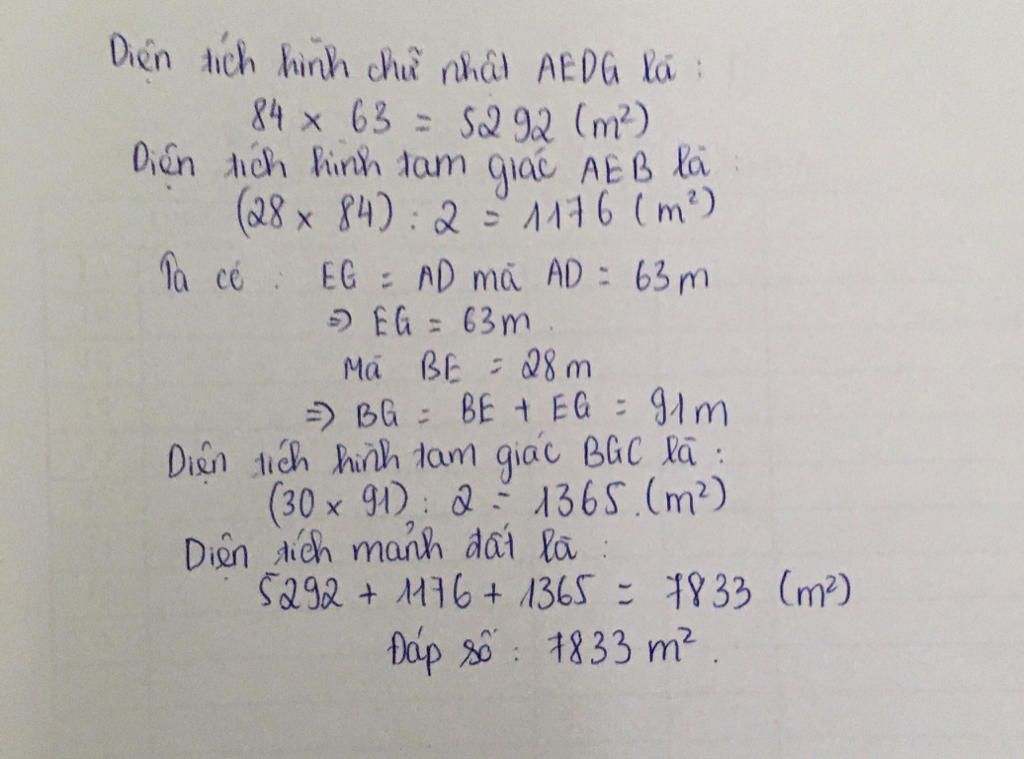 Diện tích hình chữ nhật AEDG là :
84 x 63 = 5292 (m²)
Diện tích hình tam giác AEB là :
(28 x 84) : 2 = 1176 (m²)
Ta có : EG = AD mà AD = 63m
=> EG = 63m.
Mà BE = 28m
=> BG = BE + EG = 91m
Diện tích hình tam giác BGC là :
(30 x 91) : 2 = 1365.(m²)
Diện tích mảnh đất là :
5292 + 1176 + 1365 = 7833 (m²)
Đáp số : 7833 m².